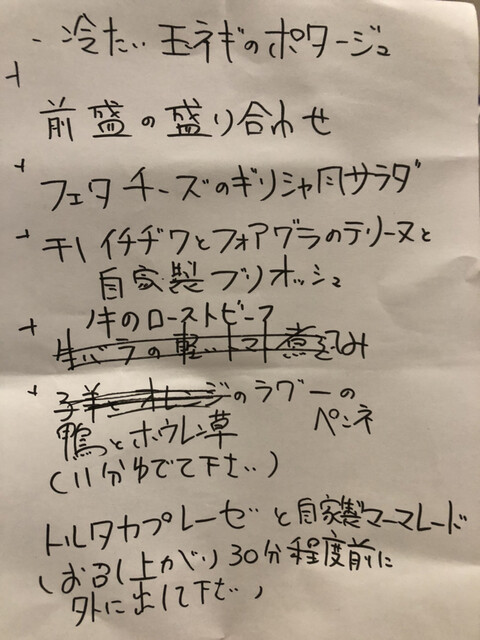 - 冷たい玉ネギのポタージュ
+
前盛の盛り合わせ
+ フェタチーズのギリシャ風サラダ
+ 干しイチヂクとフォアグラのテリーヌと
自家製ブリオッシュ
+ 牛のローストビーフ
牛バラの軽いトマト煮込み
+ 子羊とオレンジのラグーの
鴨とホウレン草 ペンネ
(11分ゆでて下さい)
トルタカプレーゼと自家製マーマレード
(お召し上がり30分程度前に
外に出して下さい)